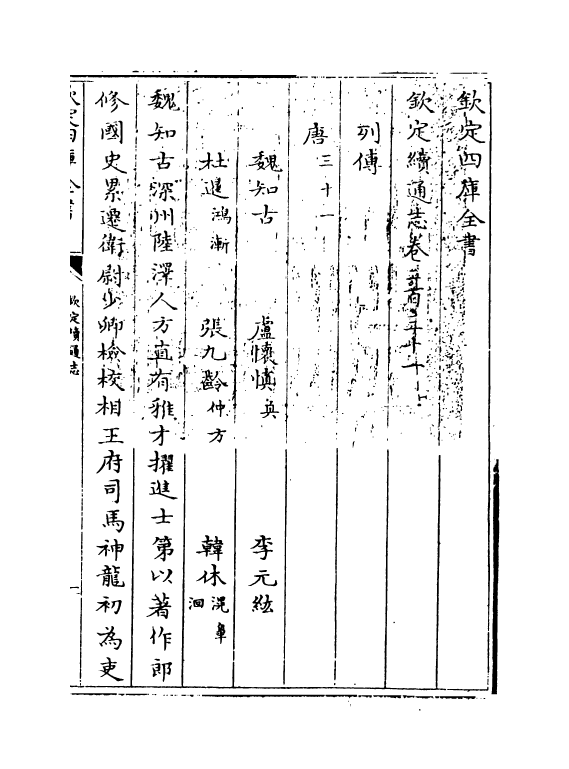 欽定四庫全書
欽定續通志卷
列傳
唐三十一
魏知古 盧懷慎奐 李元紘
杜暹鴻漸 張九齡仲方 韓休滉臯洄
魏知古深州陸澤人方直有雅才擢進士第以著作郎
修國史累遷衛尉少卿檢校相王府司馬神龍初為吏
欽定四庫全書
欽定續通志
一